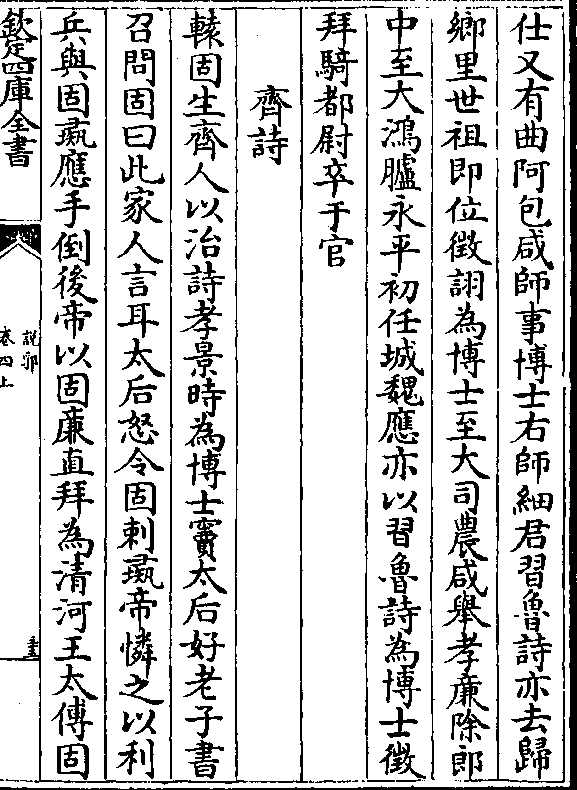 仕又有曲阿包咸師事博士右師細君習魯詩亦去歸
鄉里世祖即位徵詡為博士至大司農咸舉孝廉除郎
中至大鴻臚永平初任城魏應亦以習魯詩為博士徵
拜騎都尉卒于官
齊詩
轅固生齊人以治詩孝景時為博士竇太后好老子書
召問固曰此家人言耳太后怒令固刺彘帝憐之以利
兵與固彘應手倒後帝以固廉直拜為清河王太傅固
欽定四庫全書
說郛
卷四上